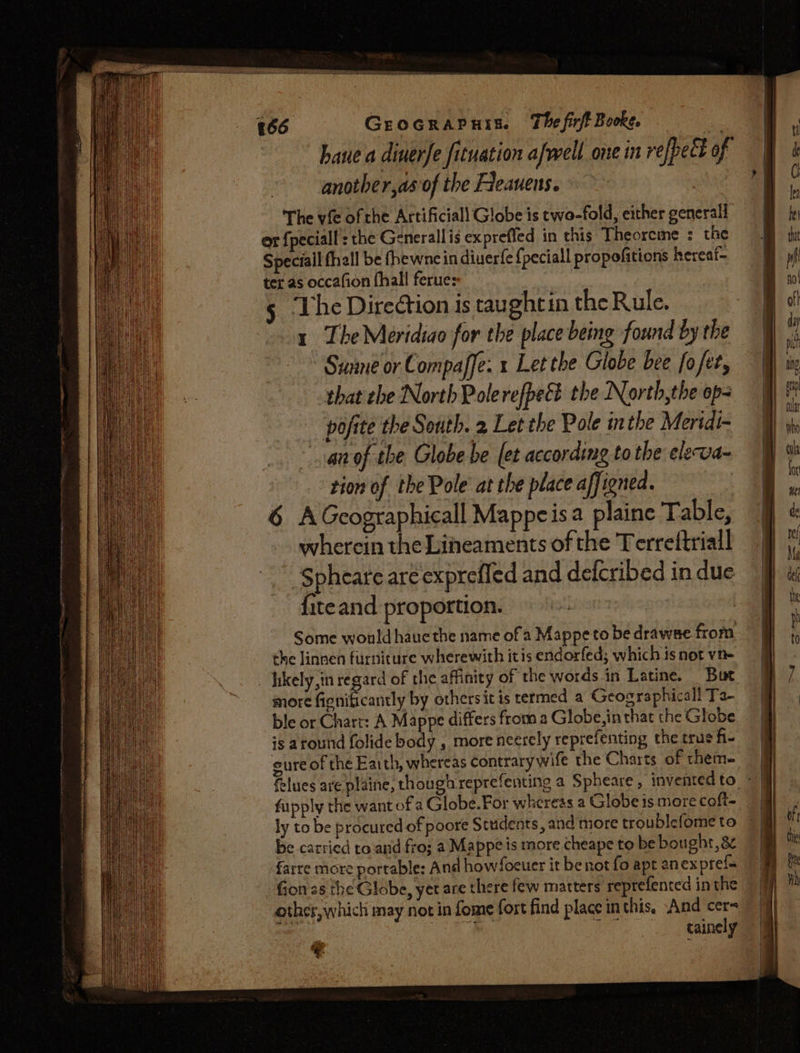 166 GEOGRAPHIE. The first Booke.
haue a diuerſe ſituation aſwell one in reſpect of
another, as of the Heauens.
The vſe of the Artificiall Globe is two-fold, either generall
or ſpeciall: the Generall is expreſſed in this Theoreme : the
Speciall ſhall be ſhewne in diuerſe ſpeciall propoſitions hereaf-
ter as occaſion ſhall ſerue:
5 The Direction is taught in the Rule.
1 The Meridiao for the place being found by the
Sunne or Compaſſe: 1 Let the Globe bee ſo ſet,
that the North Pole reſpect the North, the op-
poſite the South. 2 Let the Pole in the Meridi-
an of the Globe be ſet according to the eleva-
tion of the Pole at the place aſſigned.
6 A Geographicall Mappe is a plaine Table,
wherein the Lineaments of the Terreſtriall
Spheare are expreſſed and deſcribed in due
ſite and proportion.
Some would haue the name of a Mappe to be drawne from
the linnen furniture wherewith it is endorſed; which is not vn-
likely, in regard of the affinity of the words in Latine. But
more ſignificantly by others it is termed a Geographicall Ta-
ble or Chart: A Mappe differs from a Globe, in that the Globe
is a round ſolide body , more neerely repreſenting the true fi-
gure of the Earth, whereas contrarywiſe the Charts of them-
ſelues are plaine, though repreſenting a Spheare , invented to
ſupply the want of a Globe. For whereas a Globe is more coſt-
ly to be procured of poore Students, and more troubleſome to
be carried to and fro; a Mappe is more cheape to be bought, &
farre more portable: And howſoeuer it be not ſo apt an expreſ-
ſion as the Globe, yet are there few matters repreſented in the
other, which may not in ſome ſort find place in this. And cer-
tainely